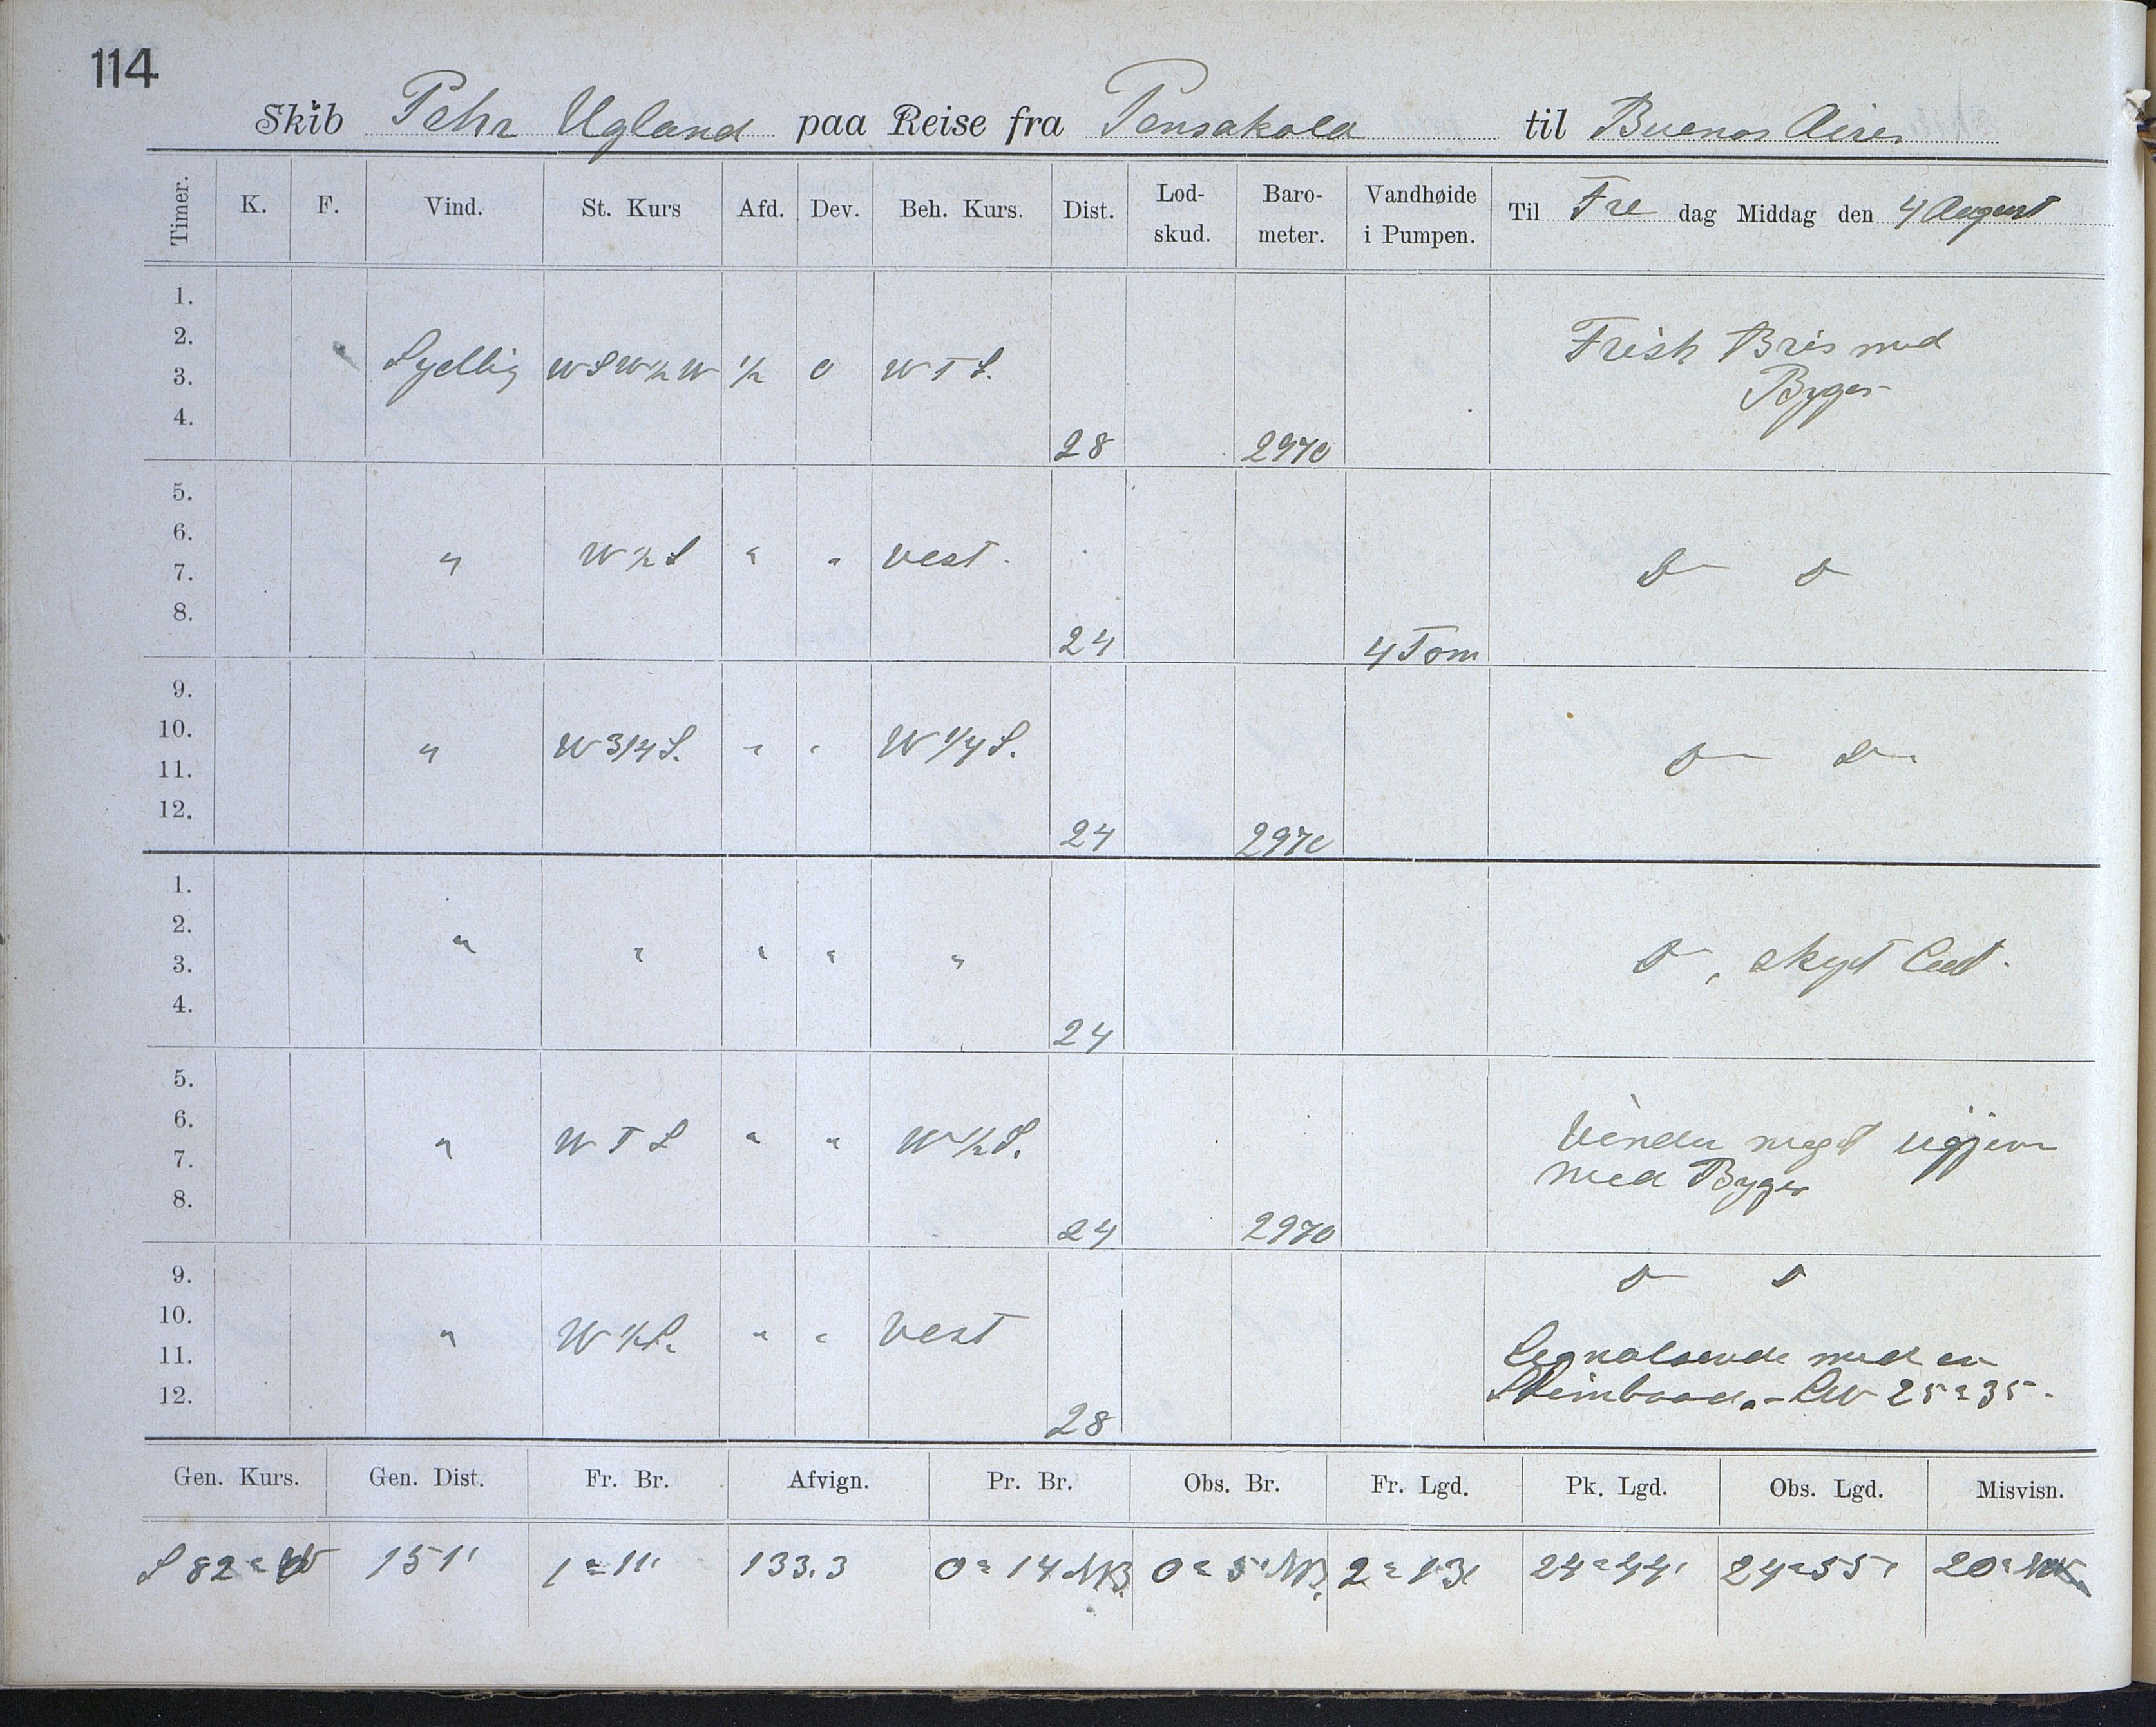 114
Skib Pehr Ugland paa Reise fra Pensakola til Buenos Aires
Timer. K. F. Vind. St. Kurs Afd. Dev. Beh. Kurs. Dist. Lod-skud. Baro-meter. Vandhøide i Pumpen. Til Fre dag Middag den 4 August
1.
2. Frisk Bris med
3. Sydlig WSW½W ½ 0 WTS. Byger
4. 28 2970
5.
6. " W½S " " vest.
7. D D
8. 24 4 Tom
9.
10. " W3/4S. " " W1/4S. D D
11.
12. 24 2970
1.
2. " " " " "
3. D, skyet Luft.
4. 24
5.
6. " WTS " " W½S. Vinden meget ugjevn
7. med Byger
8. 24 2970
9. D D
10. " W½S. " " Vest
11. med en
12. 28 25 35
Gen. Kurs. Gen. Dist. Fr. Br. Afvign. Pr. Br. Obs. Br. Fr. Lgd. Pk. Lgd. Obs. Lgd. Misvisn.
S 82° W 151' 1° 11' 133.3 0° 14 NB. 0° 5' NB. 2° 13' 24° 44' 24° 55' 20°